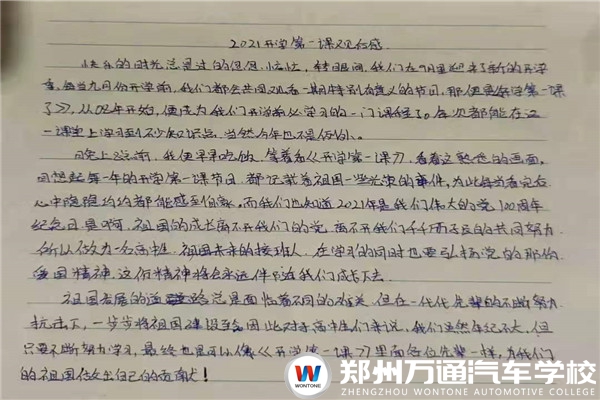 2021开学第一课观后感
快乐的时光总是过的很快,匆忙,转眼间,我们在9月里迎来了新的开学
季,每当九月份开学前,我们都会共同观看一期特别有意义的节目,那便是开学第一课
了》,从08年开始,便成为我们开学前必学习的一门课程了。每次都能在这
一课堂上学习到不少知识点,当然今年也不是例外。
晚上8点前,我便早早吃饭,等着看《开学第一课》,看着这熟悉的画面,
回想起每一年的开学第一课节目,都记载着祖国一些光荣的事件,为此每当看完后
心中隐隐约约都能感受自豪。而我们也知道2021年是我们伟大的党100周年
纪念日,是啊,祖国的成长离不开我们的党,离不开我们千千万万子民的共同努力
所以做为一名高中生,祖国未来的接班人,在学习的同时也要弘扬党的那份
爱国精神,这份精神将会永远伴随在我们成长下去。
祖国发展的道路总是面临着不同的难关,但在一代代先辈的不断努力
抗击下,一步步将祖国建设至今,因此对于高中生们来说,我们虽然年纪不大,但
只要不断努力学习,最终也是可以像《开学第一课》里面各位先辈一样,为我们
的祖国做出自己的贡献!
郑州万通汽车学校
WONTONE
ZHENGZHOU WONTONE AUTOMOTIVE COLLEGE